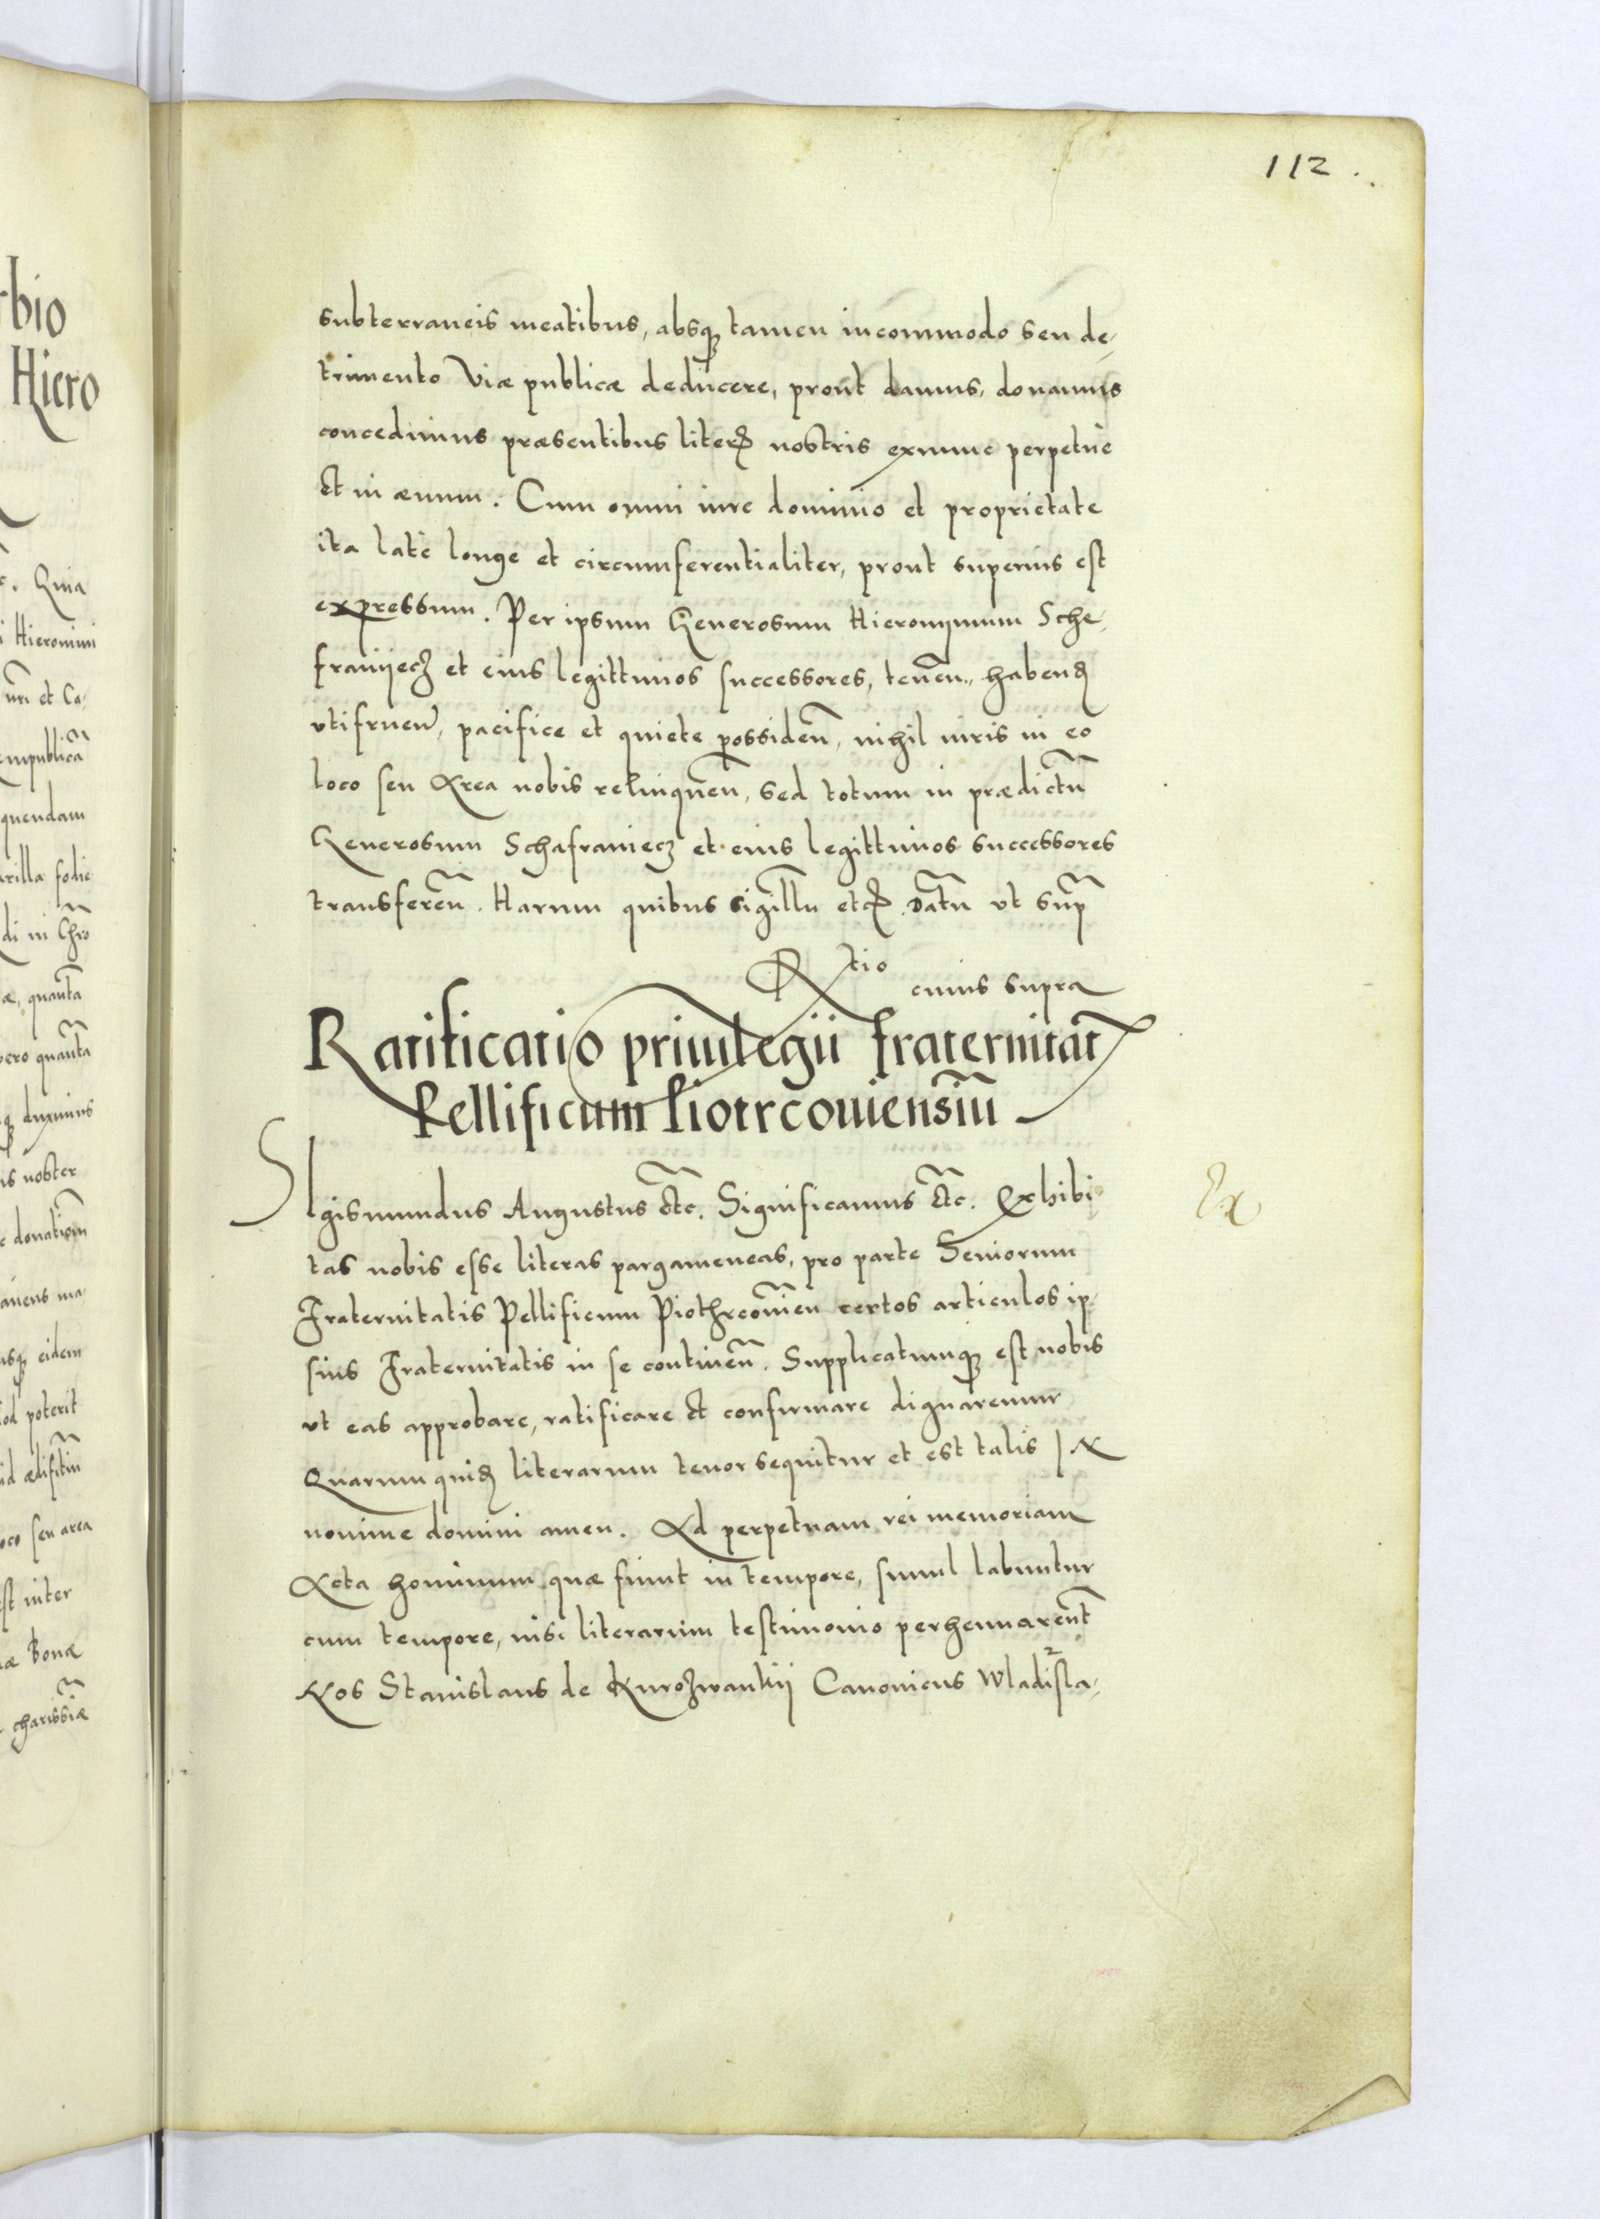 112.
subterraneis meatibus, absq3 tamen incommodo seu de-
trimento Viæ publicæ deducere, prout damus, donamus
concedimus præsentibus literȝ nostris exnunc perpetue
et in æuum. Cum omni iure dominio et proprietate
ita late longe et circumferentialiter, prout superius est
expressum. Per ipsum Generosum Hieronymum Scha-
franyecz et eius legittimos successores, teneñ. habenȡ
vtifrueñ, pacifice et quiete possideñ, nihil iuris in eo
loco seu Area nobis relinqueñ, sed totum in prædictũ
Generosum Schafraniecz et eius legittimos successores
transfereñ. Harum quibus sigillũ etc. Datũ vt sup̃
R̃tio cuius supra
Ratificatio priuilegii fraternitatȝ
Pellificum Piotrcouiensiũ
SIgismundus Augustus etc̃. Significamus etc̃. Exhibi
tas nobis esse literas pargameneas, pro parte Seniorum
Fraternitatis Pellificum Piothrcouieñ certos articulos ip-
sius Fraternitatis in se contineñ. Supplicatumq3 est nobis
vt eas approbare, ratificare et confirmare dignaremur
Quarum quiȡ literarum tenor sequitur et est talis IN
nomine domini amen. Ad perpetuam rei memoriam
Acta hominum quæ fiunt in tempore, simul labuntur
cum tempore, nisi literarum testimonio perhennarent̃
Nos Stanislaus de Kurozwankij Canonicus Wladisla-
Ex